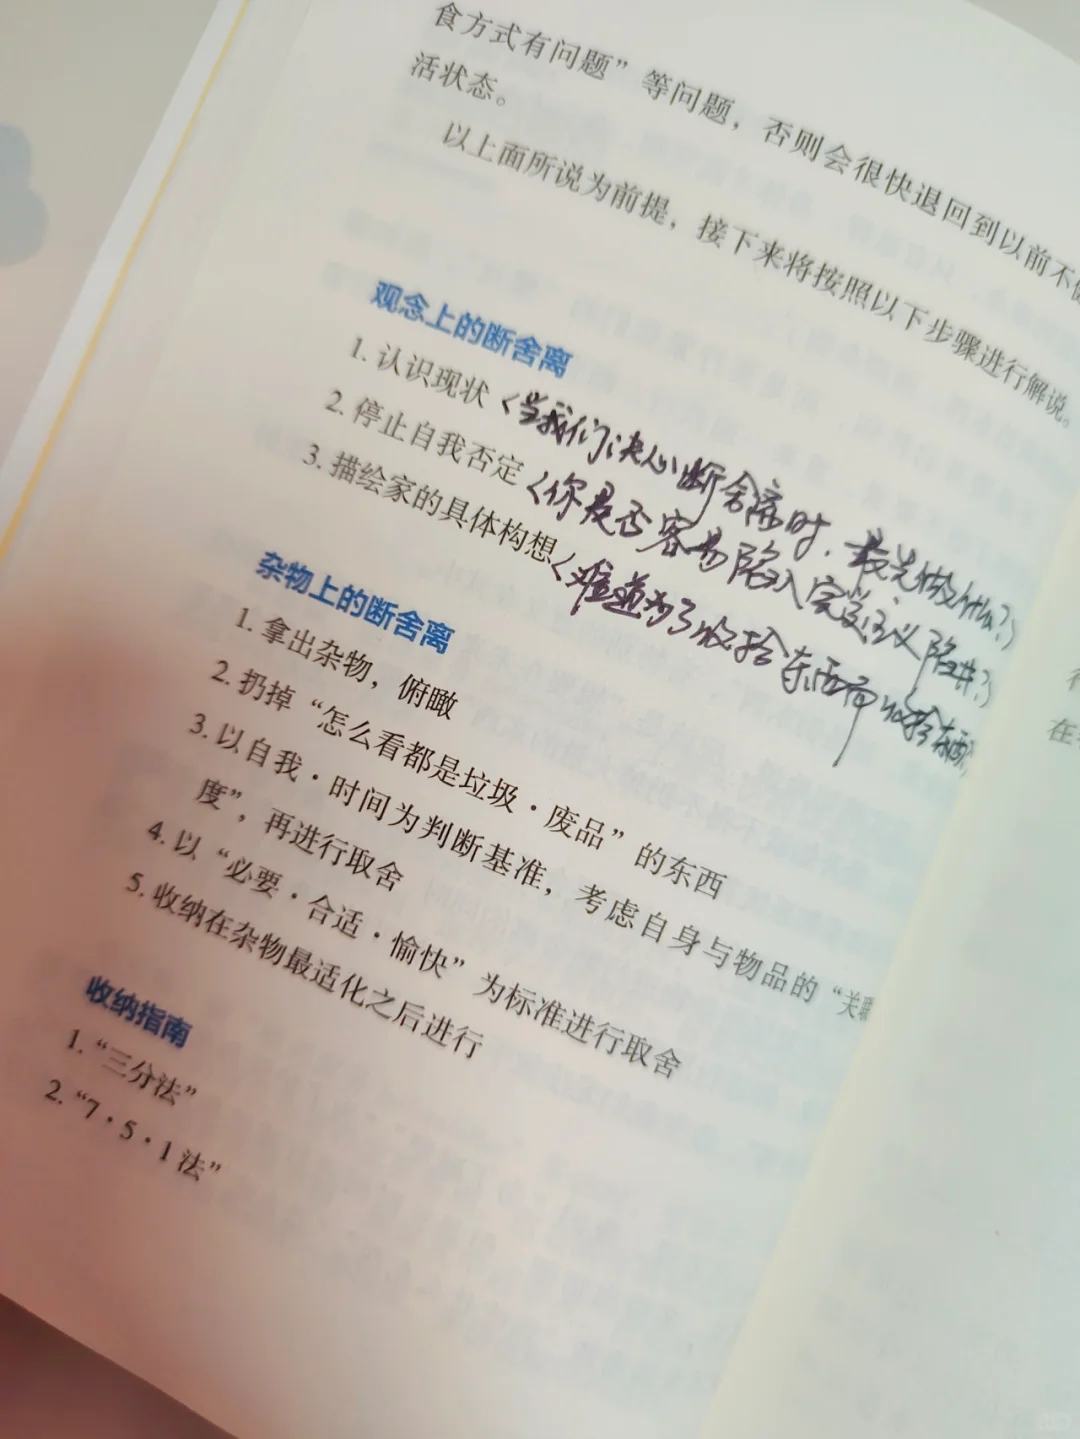 食方式有问题”等问题，否则会很快退回到以前不健
活状态。
以上面所说为前提，接下来将按照以下步骤进行解说。
观念上的断舍离
1. 认识现状〈当我们决心断舍离时，最先做什么？〉
2. 停止自我否定〈你是否容易陷入完美主义陷阱？〉
3. 描绘家的具体构想〈难道为了收拾东西而收拾东西
杂物上的断舍离
1. 拿出杂物，俯瞰
2. 扔掉“怎么看都是垃圾·废品”的东西
3. 以自我·时间为判断基准，考虑自身与物品的“关联
度”，再进行取舍
4. 以“必要·合适·愉快”为标准进行取舍
5. 收纳在杂物最适化之后进行
收纳指南
1. “三分法”
2. “7·5·1法”
在